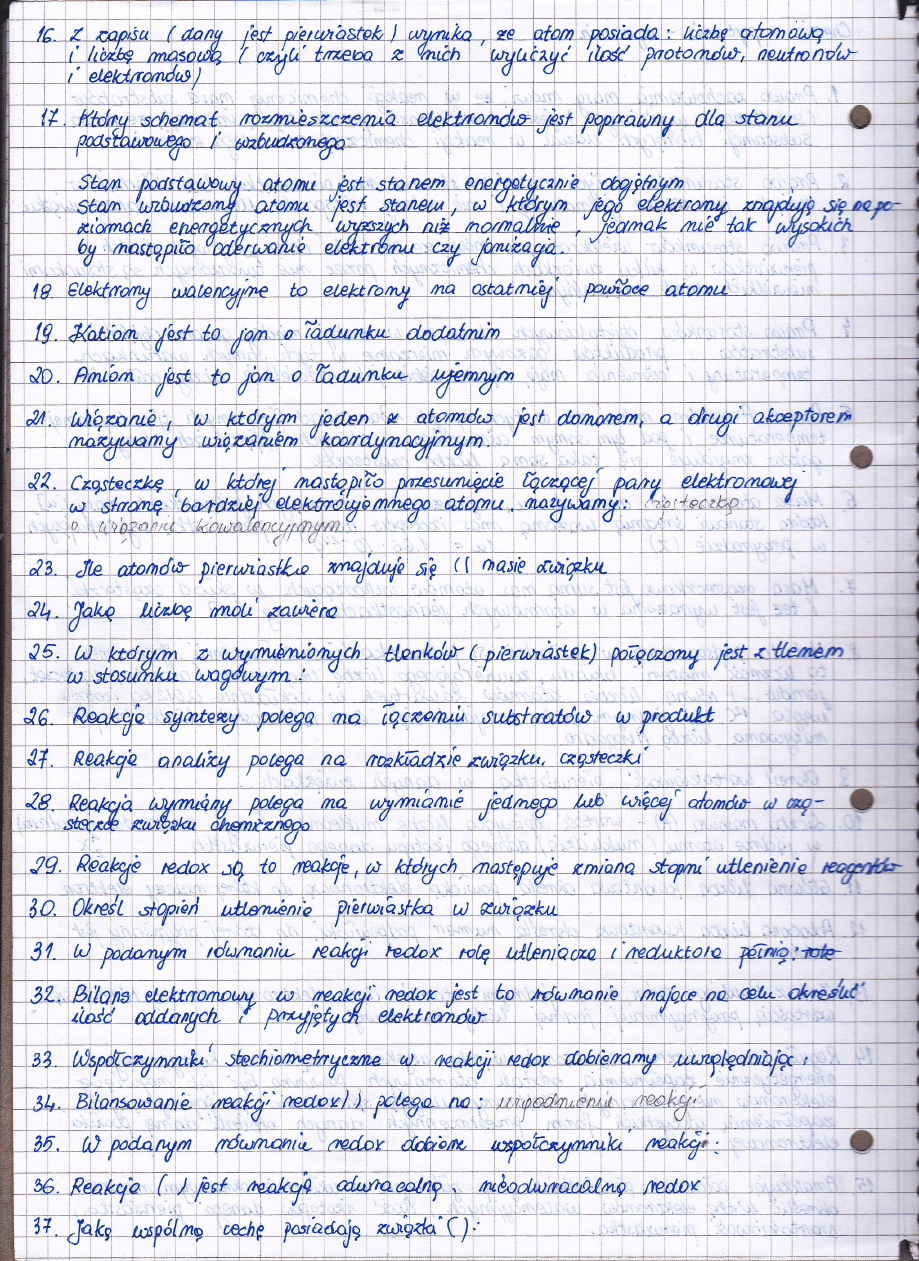 16. Z zapisu (dany jest pierwiastek) wynika, ze atom posiada: liczbę atomową
i liczbę masową (czyli trzeba z nich wyliczyć ilość protonów, neutronów
i elektronów)
17. Który schemat rozmieszczenia elektronów jest poprawny dla stanu
podstawowego i wzbudzonego
Stan podstawowy atomu jest stanem energetycznie obojętnym
Stan wzbudzony atomu jest stanem, w którym jego elektrony znajdują się na po-
ziomach energetycznych wyższych niż normalnie, jednak nie tak wysokich
by nastąpiło oderwanie elektronu czy jonizacja.
18. Elektrony walencyjne to elektrony na ostatniej powłoce atomu
19. Kation jest to jon o ładunku dodatnim
20. Anion jest to jon o ładunku ujemnym
21. Wiązanie, w którym jeden z atomów jest donorem, a drugi akceptorem
nazywamy wiązaniem koordynacyjnym.
22. Cząsteczkę, w której nastąpiło przesunięcie łączącej pary elektronowej
w stronę bardziej elektroujemnego atomu nazywamy: cząsteczką
o wiązaniu kowalencyjnym.
23. Ile atomów pierwiastka znajduje się () masie związku
24. Jaką liczbę moli zawiera
25. W którym z wymienionych tlenków (pierwiastek) połączony jest z tlenem
w stosunku wagowym:
26. Reakcja syntezy polega na łączeniu substratów w produkt
27. Reakcja analizy polega na rozkładzie związku. cząsteczki
28. Reakcja wymiany polega na wymianie jednego lub więcej atomów w czą-
steczce związku chemicznego
29. Reakcje redox są to reakcje, w których następuje zmiana stopni utlenienia reagentów
30. Określ stopień utlenienia pierwiastka w związku
31. W podanym równaniu reakcji redox rolę utleniacza i reduktora pełnią: rolę
32. Bilans elektronowy w reakcji redox jest to równanie mające na celu określić
ilość oddanych i przyjętych elektronów
33. Współczynniki stechiometryczne w reakcji redox dobieramy uwzględniając:
34. Bilansowanie reakcji redox() polega na: uzgodnieniu reakcji
35. W podanym równaniu redox dobierz współczynniki reakcji:
36. Reakcja () jest reakcją odwracalną, nieodwracalną redox
37. Jaką wspólną cechę posiadają związki ():